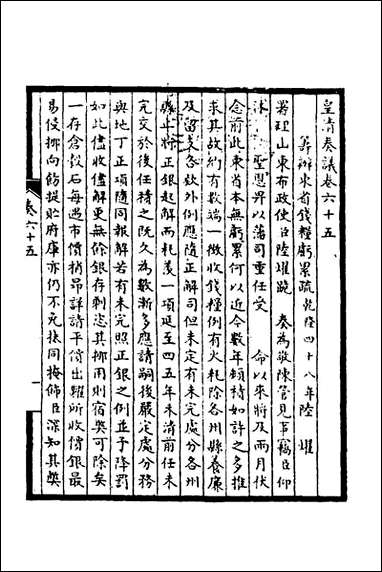 皇清奏議卷六十五
籌辦東省錢糧虧累疏乾隆四十八年陸 燿
署理山東布政使臣陸燿跪 奏為敬陳管見事竊臣仰
沐 聖恩畀以藩司重任受 命以來將及兩月伏
念前此東省本無虧累何以近今數年頓積如許之多推
求其故約有數端一徵收錢糧例有火耗除各州縣養廉
及留支各款外例應隨正解司但未定有未完處分各州
縣止將正銀起解而耗羨一項延至四五年未清前任未
完交於後任積之既久為數漸多應請嗣後嚴定處分務
與地丁正項隨同報解若有未完照正銀之例並予降罰
如此儘收儘解更無餘銀存剩恣其挪用則宿獘可除矣
一存倉穀石每遇市價稍昂詳請平價出糶所收價銀最
易侵挪向飭提貯府庫亦仍不免扶同掩飾臣深知其獘
卷六十五
一